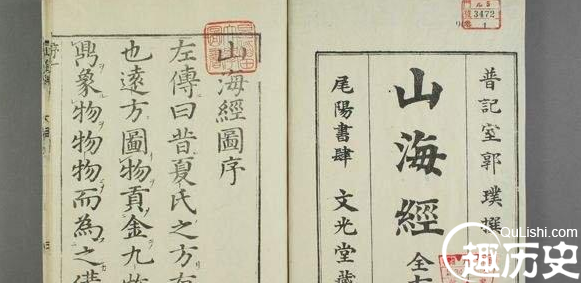 3472
1
晋記室郭璞撰
山海經 全
尾陽書肆 文光堂藏
山海經圖序
左傳曰昔夏氏之方有
也遠方圖物貢金九牧
鼎象物物物而為之備
QuLishi.com
趣历史